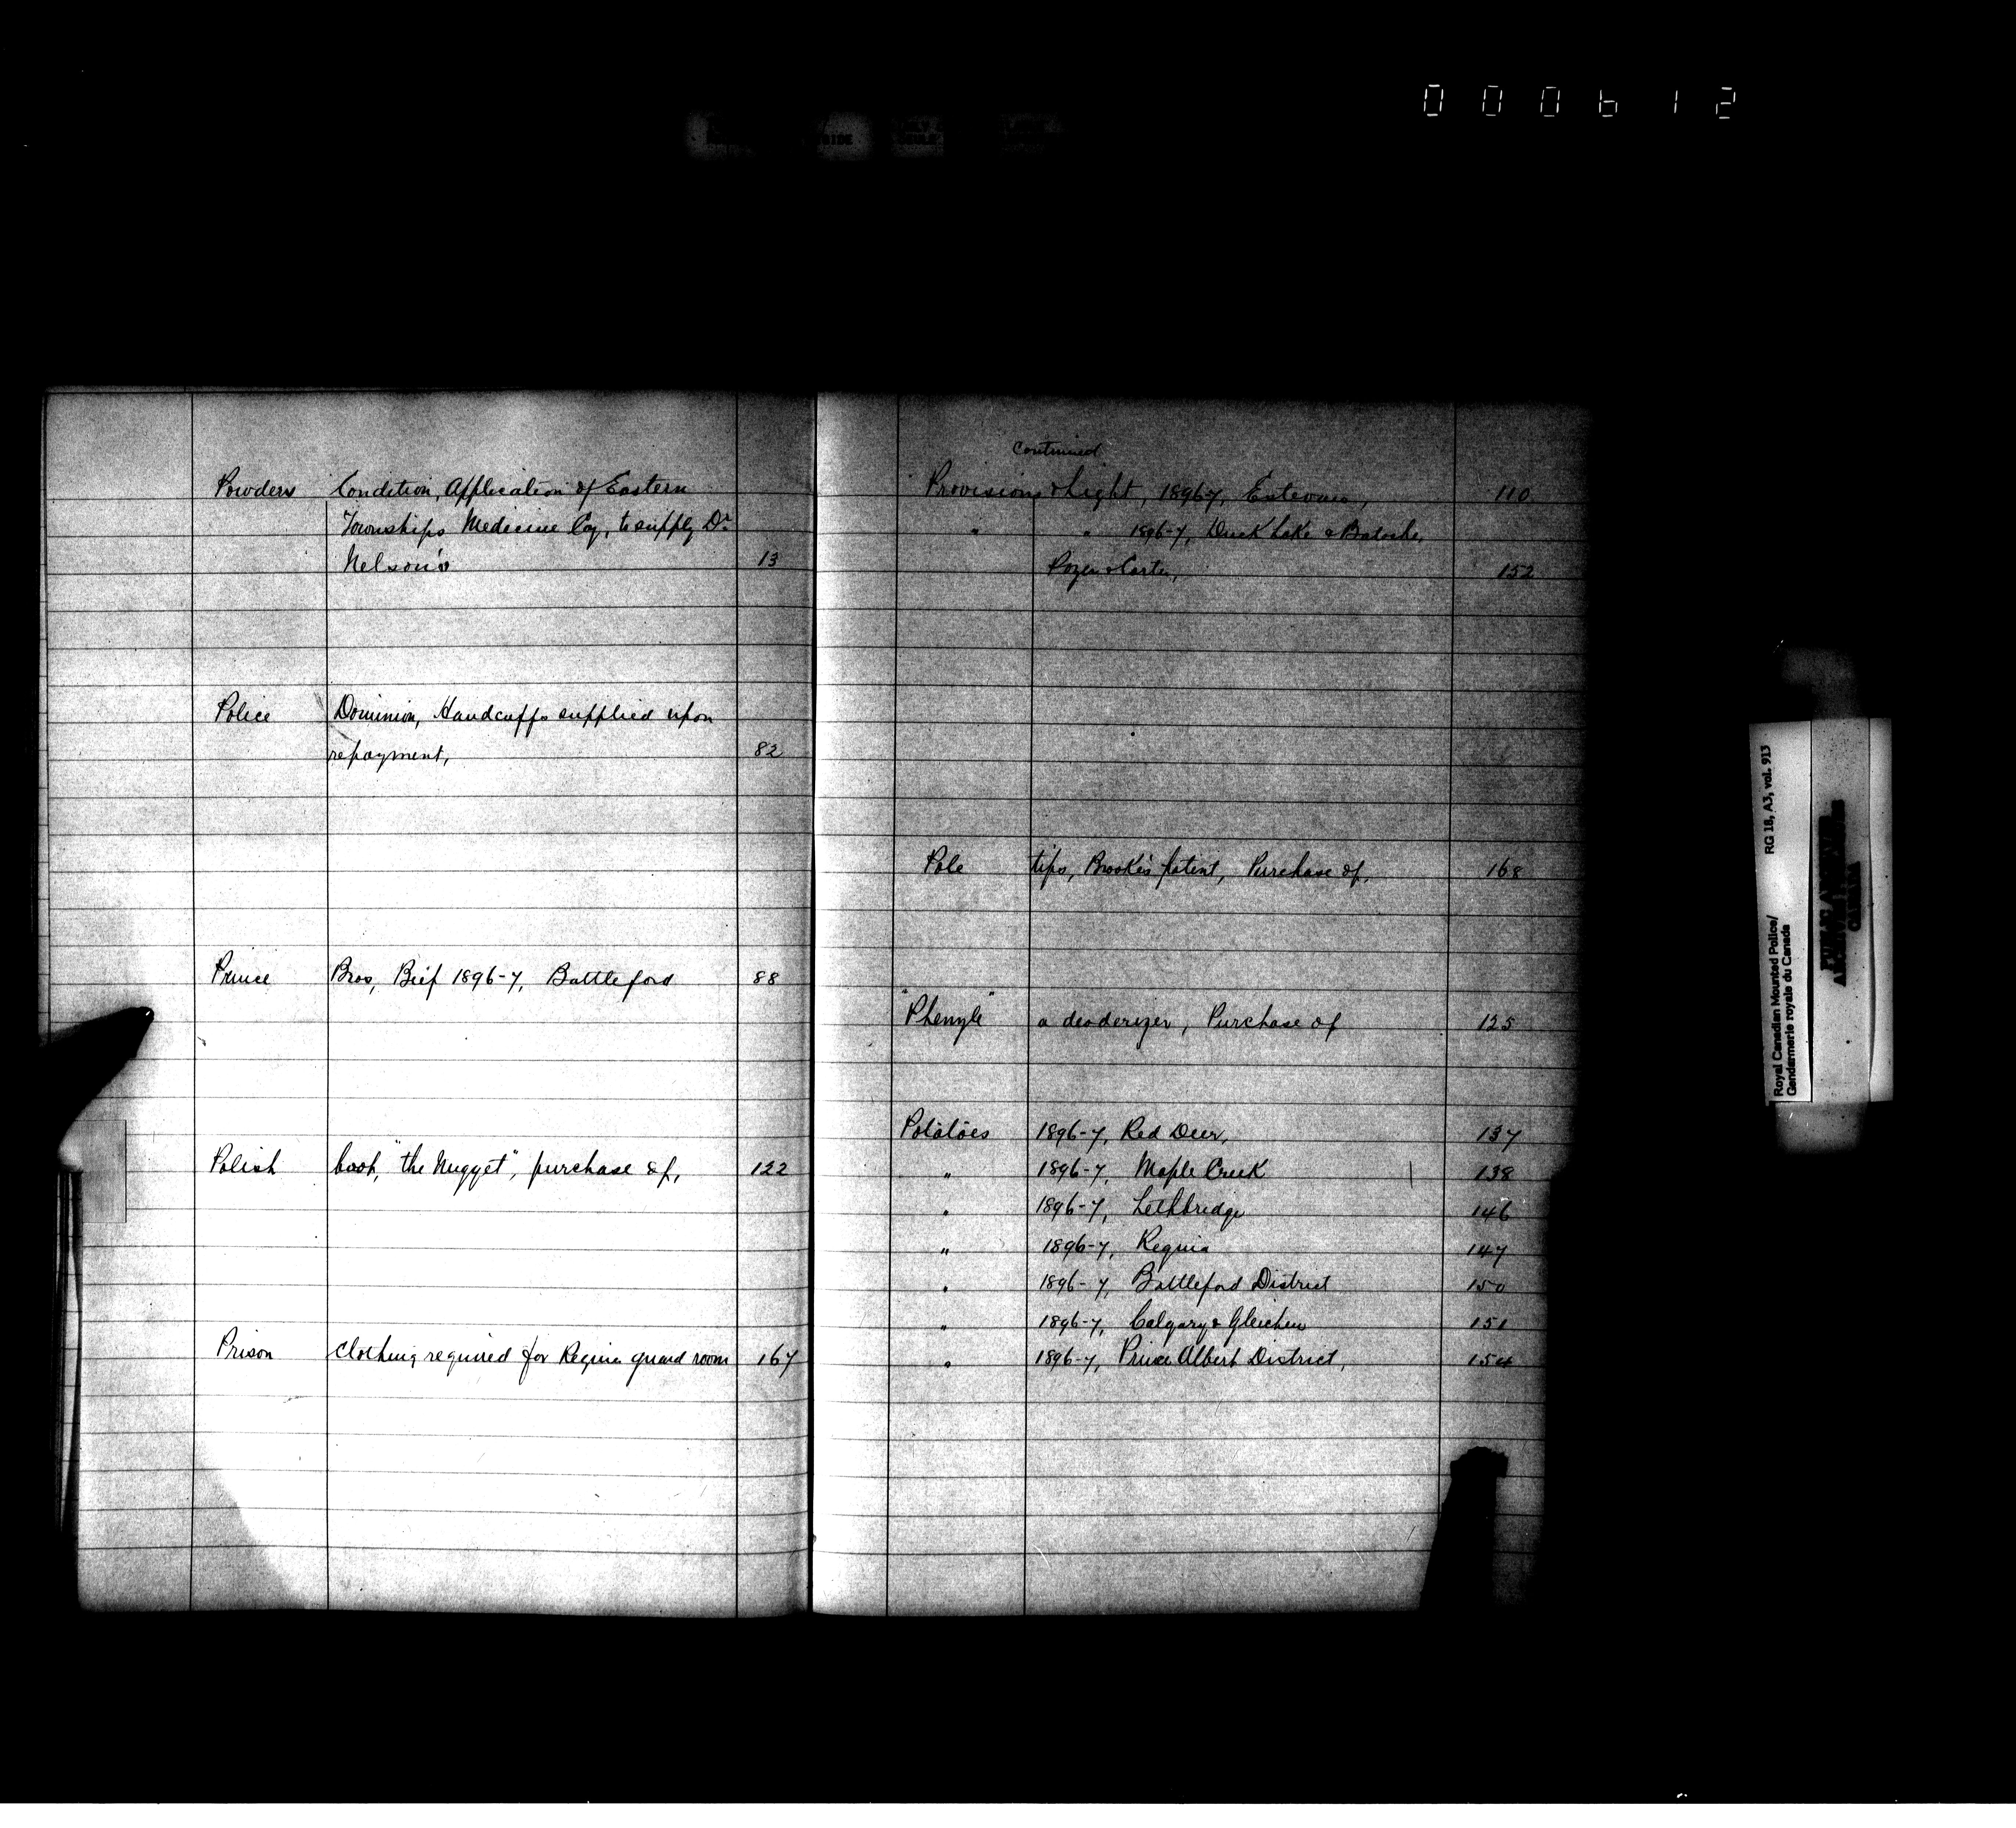 000612
Powders Condition, Application of Eastern
Townships Medicine Coy, to supply Dr
Nelson's 13
Police Dominion, Handcuffs supplied upon
repayment, 82
Prince Bros, Beef 1896-7, Battleford 88
Polish boot, "the Nugget", purchase of, 122
Prison clothing required for Regina guard room 167
continued
Provisions & Light, 1896-7, Estevan, 110
" " 1896-7, Duck Lake & Batoche,
& Carter, 152
Pole tips, Brook's patent, Purchase of, 168
"Phenyle" a deoderizer, Purchase of 125
Potatoes 1896-7, Red Deer, 137
" 1896-7, Maple Creek 138
" 1896-7, Lethbridge 146
" 1896-7, Regina 147
" 1896-7, Battleford District 150
" 1896-7, Calgary & Gleichen 151
" 1896-7, Prince Albert District, 154
RG 18, A3, vol. 913
Royal Canadian Mounted Police/
Gendarmerie royale du Canada
PUBLIC ARCHIVES
ARCHIVES PUBLIQUES
CANADA